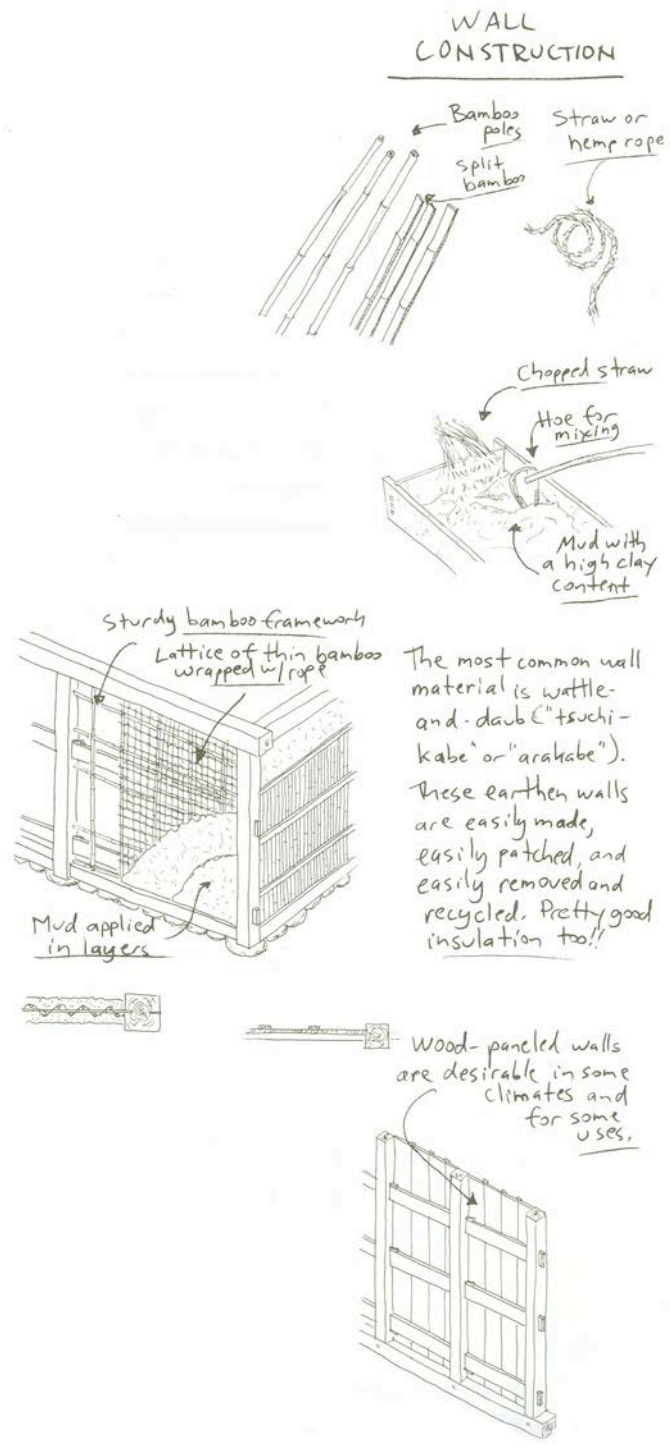 WALL
CONSTRUCTION
Bamboo
poles
split
bamboo
Straw or
hemp rope
Chopped straw
Hoe for
mixing
Mud with
a high clay
content
Sturdy bamboo framework
Lattice of thin bamboo
wrapped w/rope
Mud applied
in layers
The most common wall
material is wattle-
and-daub ("tsuchi-
kabe" or "arakabe").
These earthen walls
are easily made,
easily patched, and
easily removed and
recycled. Pretty good
insulation too!!
Wood-paneled walls
are desirable in some
climates and
for some
uses.